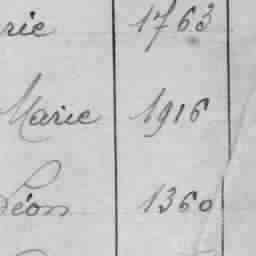 rie 1763
Marie 1916
Léon 1360